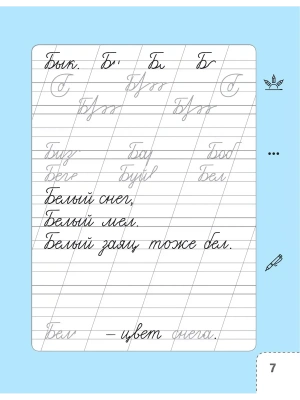 Бык. Б Б Б
Б Б Б
Б Б
Бар Боб
Беге Буйв Бел
Белый снег,
Белый мел.
Белый заяц тоже бел.
Бел – цвет снега.
7